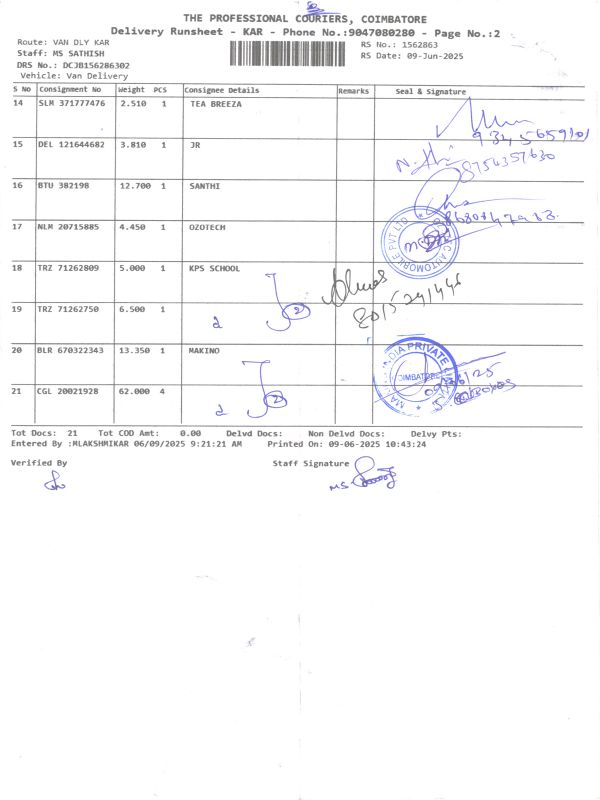 THE PROFESSIONAL COURIERS, COIMBATORE
Delivery Runsheet - KAR - Phone No.:9047080280 - Page No.:2
Route: VAN DLY KAR
RS No.: 1562863
Staff: MS SATHISH
RS Date: 09-Jun-2025
DRS No.: DCJB156286302
Vehicle: Van Delivery
S No Consignment No Weight PCS Consignee Details Remarks Seal & Signature
14 SLM 371777476 2.510 1 TEA BREEZA
9345659101
15 DEL 121644682 3.810 1 JR
8754357630
16 BTU 382198 12.700 1 SANTHI
17 NLM 20715885 4.450 1 OZOTECH
AUTOMOBILE PVT LTD
18 TRZ 71262809 5.000 1 KPS SCHOOL
19 TRZ 71262750 6.500 1
2
20 BLR 670322343 13.350 1 MAKINO
INDIA PRIVATE
COIMBATORE
21 CGL 20021928 62.000 4
2
Tot Docs: 21 Tot COD Amt: 0.00 Delvd Docs: Non Delvd Docs: Delvy Pts:
Entered By :MLAKSHMIKAR 06/09/2025 9:21:21 AM Printed On: 09-06-2025 10:43:24
Verified By Staff Signature
MS.